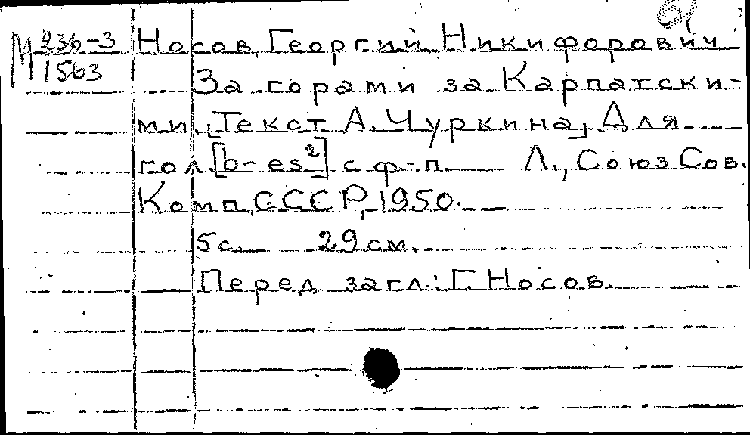 М 236-3
1563
Носов, Георгий Никифорович
За горами за Карпатски-
ми. Текст А. Чуркина, Для
гол. [b-es²] с ф-п. Л., Союз Сов.
Комп. СССР, 1950.
5с. 29 см.
Перед загл.: Г. Носов.